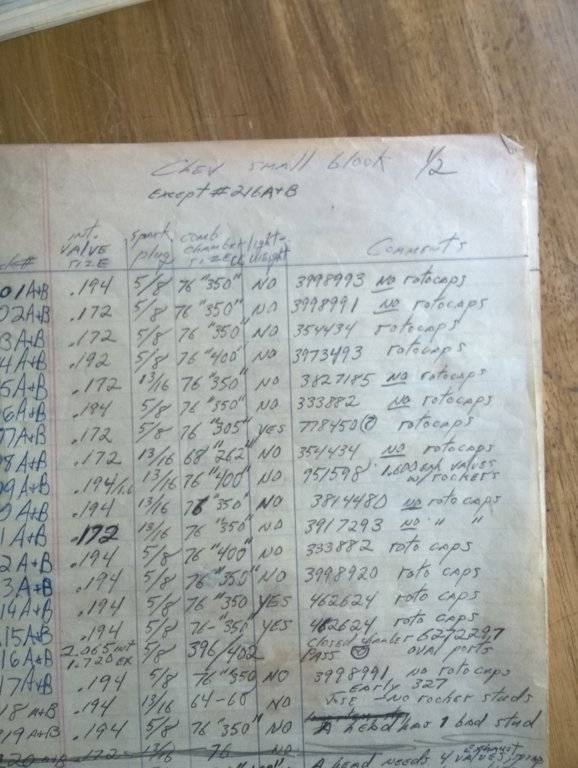 Chev small block 1/2
Except #216A+B
INT. VALVE SIZE spark plug comb chamber SIZE light-weight Comments
01A+B .194 5/8 76 "350" NO 3998993 NO rotocaps
02A+B .172 5/8 76 "350" NO 3998991 NO rotocaps
3A+B .172 5/8 76 "350" NO 354434 rotocaps
4A+B .192 5/8 76 "400" NO 3973493 rotocaps
5A+B .172 13/16 76 "350" NO 3827185 NO rotocaps
6A+B .194 5/8 76 "350" NO 333882 NO rotocaps
07A+B .172 5/8 76 "305" YES 778450 rotocaps
08A+B .172 13/16 68 "262" NO 354434 NO rotocaps
09A+B .194/1.6 13/16 76 "400" NO 951598 VALVES
w/ rockers
A+B .194 13/16 76 "350" NO 3814480 NO roto caps
1A+B .172 13/16 76 "350" NO 3917293 NO " "
2A+B .194 5/8 76 "400" NO 333882 roto caps
3A+B .194 5/8 76 "350" NO 3998920 roto caps
14A+B .194 5/8 76 "350 YES 462624 roto caps
15A+B .194 5/8 76- "350 YES 462624 roto caps
16A+B 2.065 int 1.720 EX 5/8 396/402 closed 6272297
PASS oval ports
17A+B .194 5/8 76 "350 NO 3998991 NO rotocaps
18 A+B .194 13/16 64-60 NO EARLY 327
USE - NO rocker studs
19A+B .194 5/8 76 "350" NO A head has 1 bad stud
220 A+B .172 13/16 76 NO
A head needs 4 Exhaust VALVES